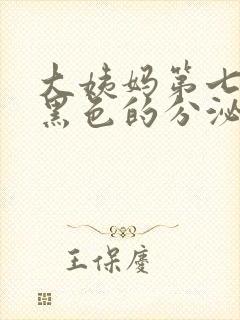 大姨妈第七
黑色的分泌
王保庆